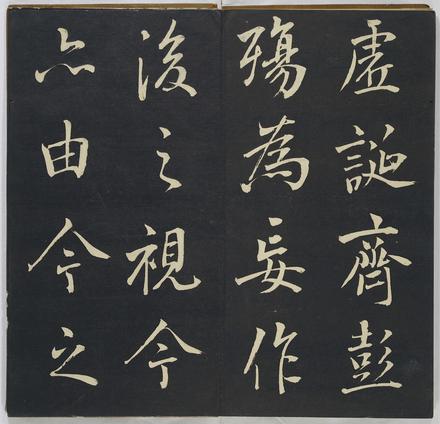 虛誕齊彭
殤為妄作
後之視今
亦由今之